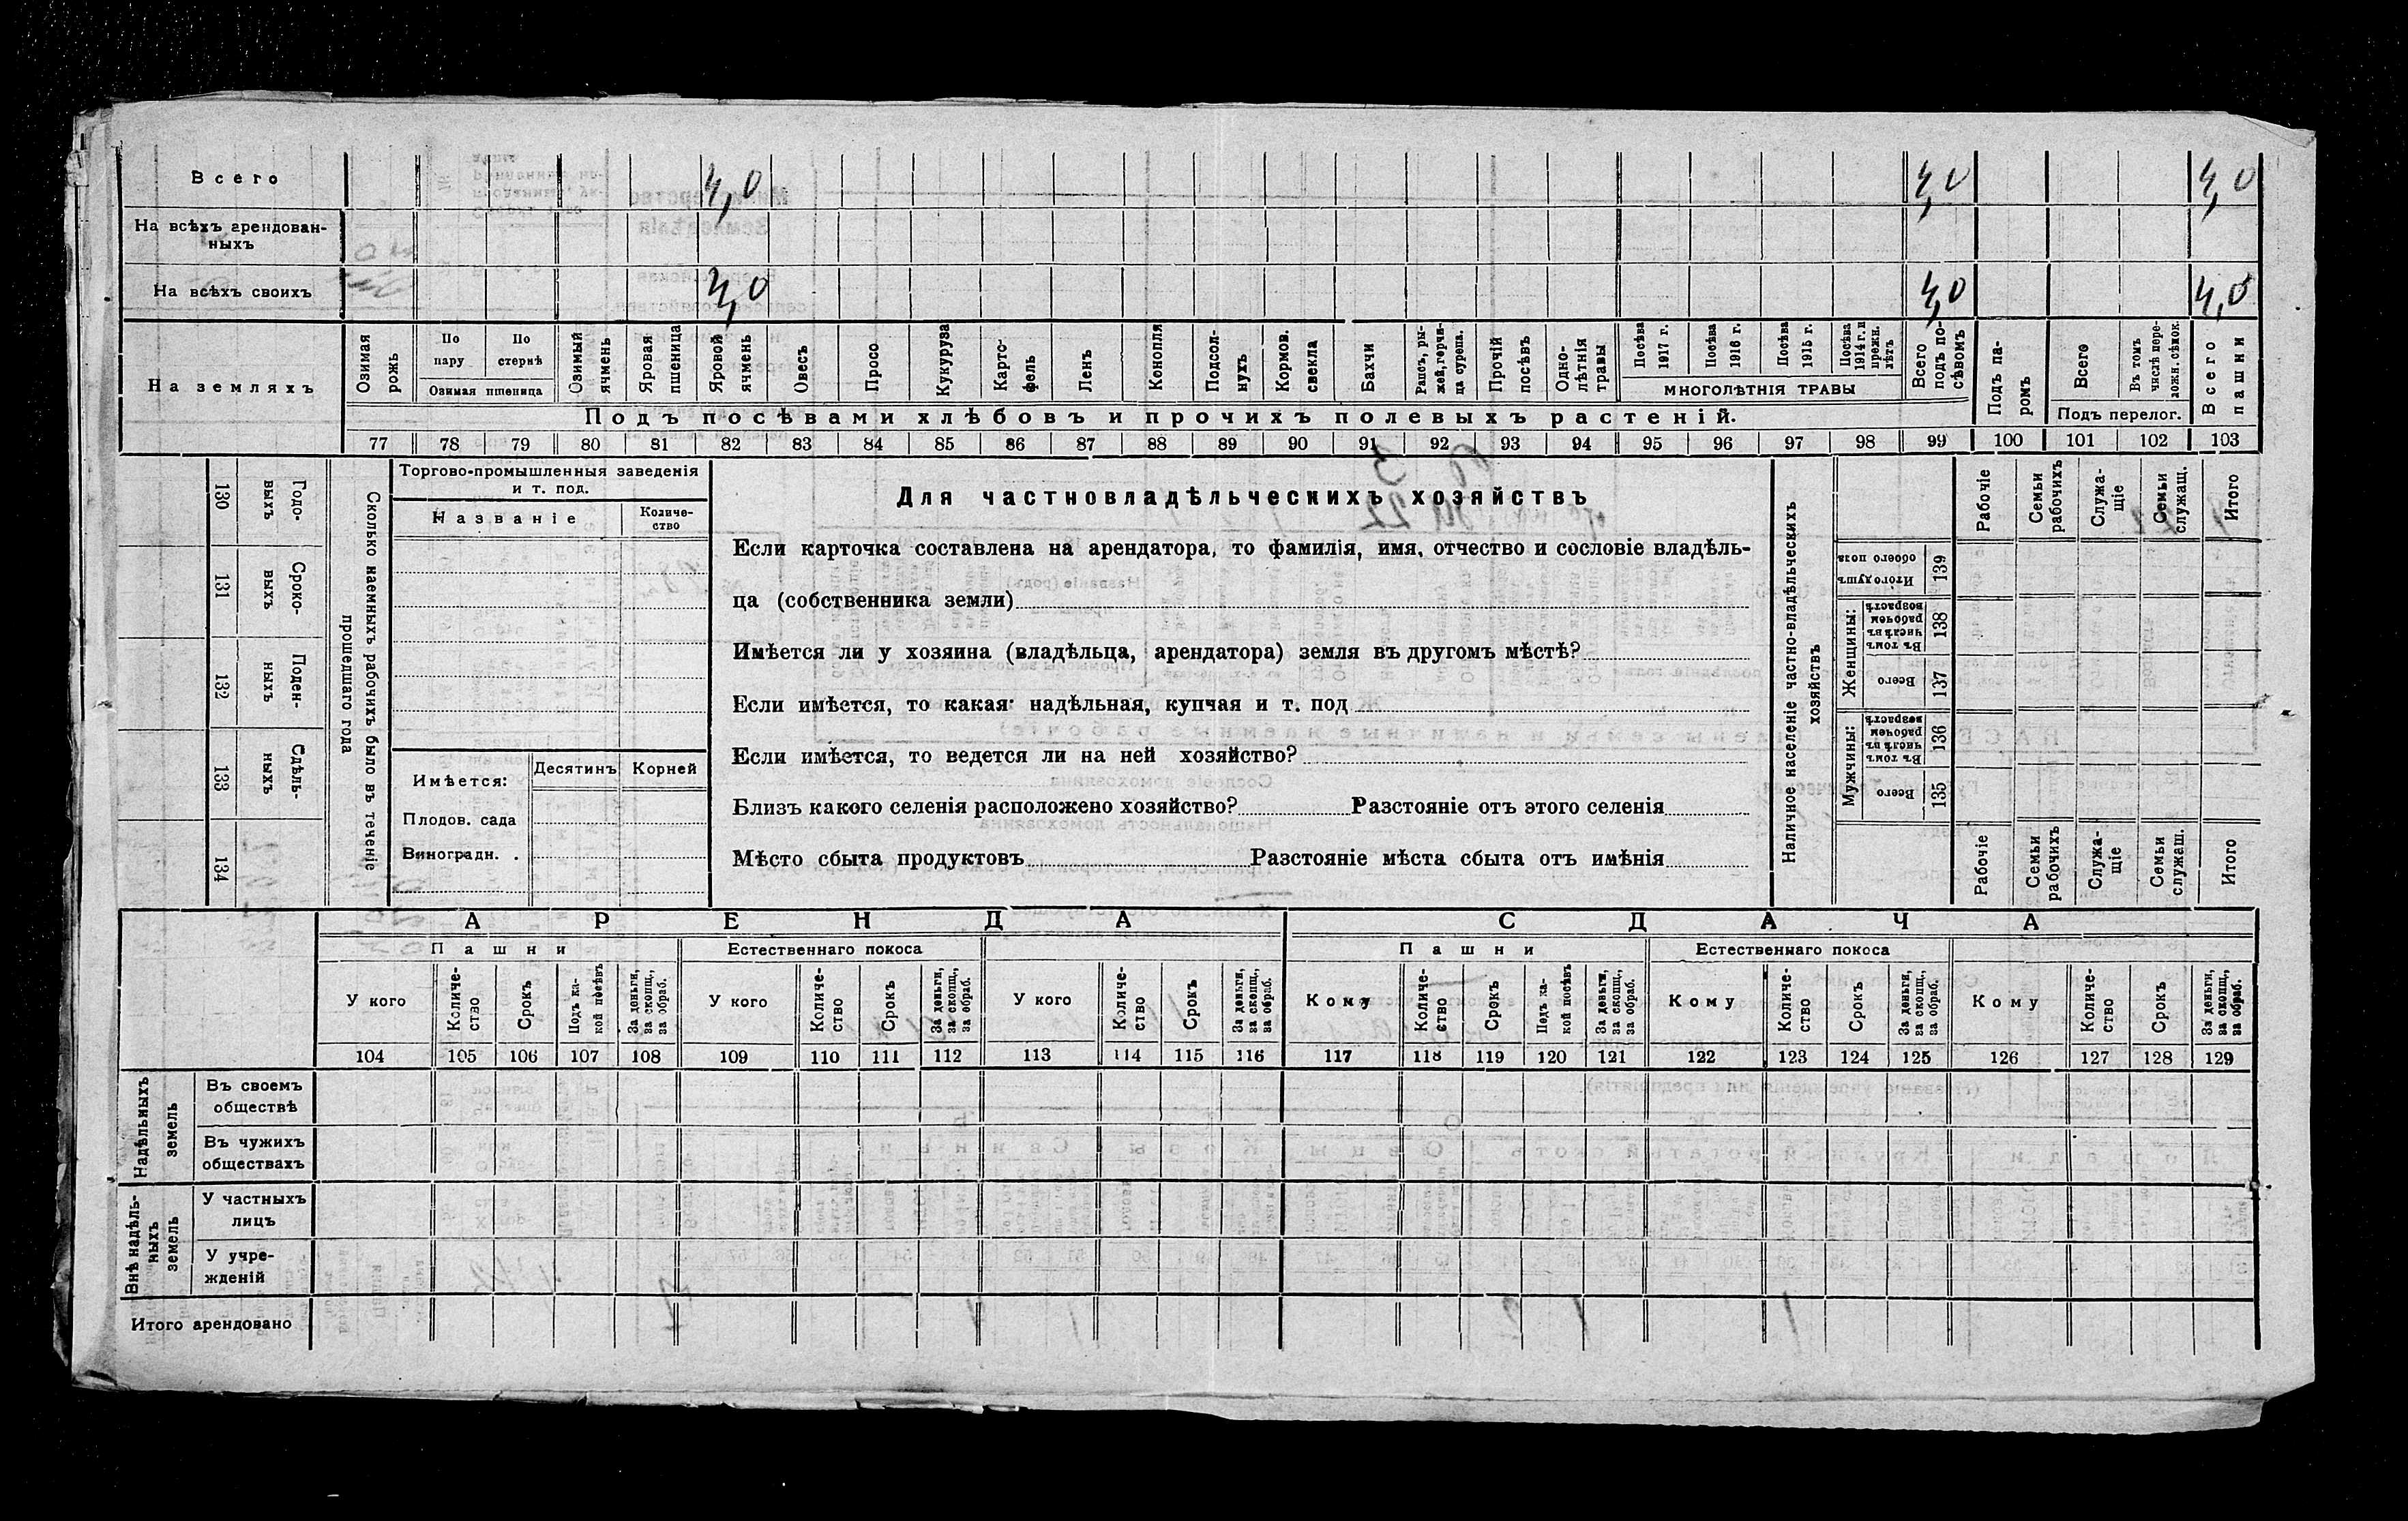 Всего 4,0 4,0 4,0
На всѣхъ арендован-
ныхъ
На всѣхъ своихъ 4,0 4,0 4,0
На земляхъ
Озимая рожь
По пару
По стернѣ
Озимая пшеница
Озимый ячмень
Яровая пшеница
Яровой ячмень
Овесъ
Просо
Кукуруза
Карто-
фель
Ленъ
Конопля
Подсол-
нухъ
Кормов. свекла
Бахчи
Рапсъ, ры-
жей, горчи-
ца сурепа.
Прочій посѣвъ
Одно-
лѣтнія травы
Посѣва 1917 г.
Посѣва 1916 г.
Посѣва 1915 г.
Посѣва 1914 г. и прежн. лѣтъ
МНОГОЛѢТНІЯ ТРАВЫ
Всего подъ по-
сѣвомъ
Подъ па-
ромъ
Всего
Въ томъ числѣ пере-
ложн. сѣнок.
Подъ перелог.
Всего пашни
Подъ посѣвами хлѣбовъ и прочихъ полевыхъ растеній.
77 78 79 80 81 82 83 84 85 86 87 88 89 90 91 92 93 94 95 96 97 98 99 100 101 102 103
130 Годо-
выхъ
131 Сроко-
выхъ
132 Поден-
ныхъ
133 Сдѣль-
ныхъ
134
Сколько наемныхъ рабочихъ было въ теченіе
прошедшаго года
Торгово-промышленныя заведенія
и т. под.
Названіе
Количе-
ство
Имѣется:
Десятинъ Корней
Плодов. сада
Виноградн. .
Для частновладѣльческихъ хозяйствъ
Если карточка составлена на арендатора, то фамилія, имя, отчество и сословіе владѣль-
ца (собственника земли)
Имѣется ли у хозяина (владѣльца, арендатора) земля въ другомъ мѣстѣ?
Если имѣется, то какая: надѣльная, купчая и т. под
Если имѣется, то ведется ли на ней хозяйство?
Близъ какого селенія расположено хозяйство? Разстояніе отъ этого селенія
Мѣсто сбыта продуктовъ Разстояніе мѣста сбыта отъ имѣнія
Наличное населеніе частно-владѣльческихъ
хозяйствъ
Рабочіе
Семьи рабочихъ
Служа-
щіе
Семьи служащ.
Итого
Итого душъ
обоего пола
139
Женщины:
Въ томъ числѣ въ рабочемъ возрастѣ
138
Всего
137
Мужчины:
Въ томъ числѣ въ рабочемъ возрастѣ
136
Всего
135
Рабочіе
Семьи рабочихъ
Служа-
щіе
Семьи служащ.
Итого
АРЕНДА СДАЧА
Пашни Естественнаго покоса Пашни Естественнаго покоса
У кого
Количе-
ство
Срокъ
Подъ ка-
кой посѣвъ
За деньги, за скопщ., за обраб.
У кого
Количе-
ство
Срокъ
За деньги, за скопщ., за обраб.
У кого
Количе-
ство
Срокъ
За деньги, за скопщ., за обраб.
Кому
Количе-
ство
Срокъ
Подъ ка-
кой посѣвъ
За деньги, за скопщ., за обраб.
Кому
Количе-
ство
Срокъ
За деньги, за скопщ., за обраб.
Кому
Количе-
ство
Срокъ
За деньги, за скопщ., за обраб.
104 105 106 107 108 109 110 111 112 113 114 115 116 117 118 119 120 121 122 123 124 125 126 127 128 129
Надѣльныхъ
земель
Въ своемъ
обществѣ
Въ чужихъ
обществахъ
Внѣ надѣль-
ныхъ
земель
У частныхъ
лицъ
У учре-
жденій
Итого арендовано